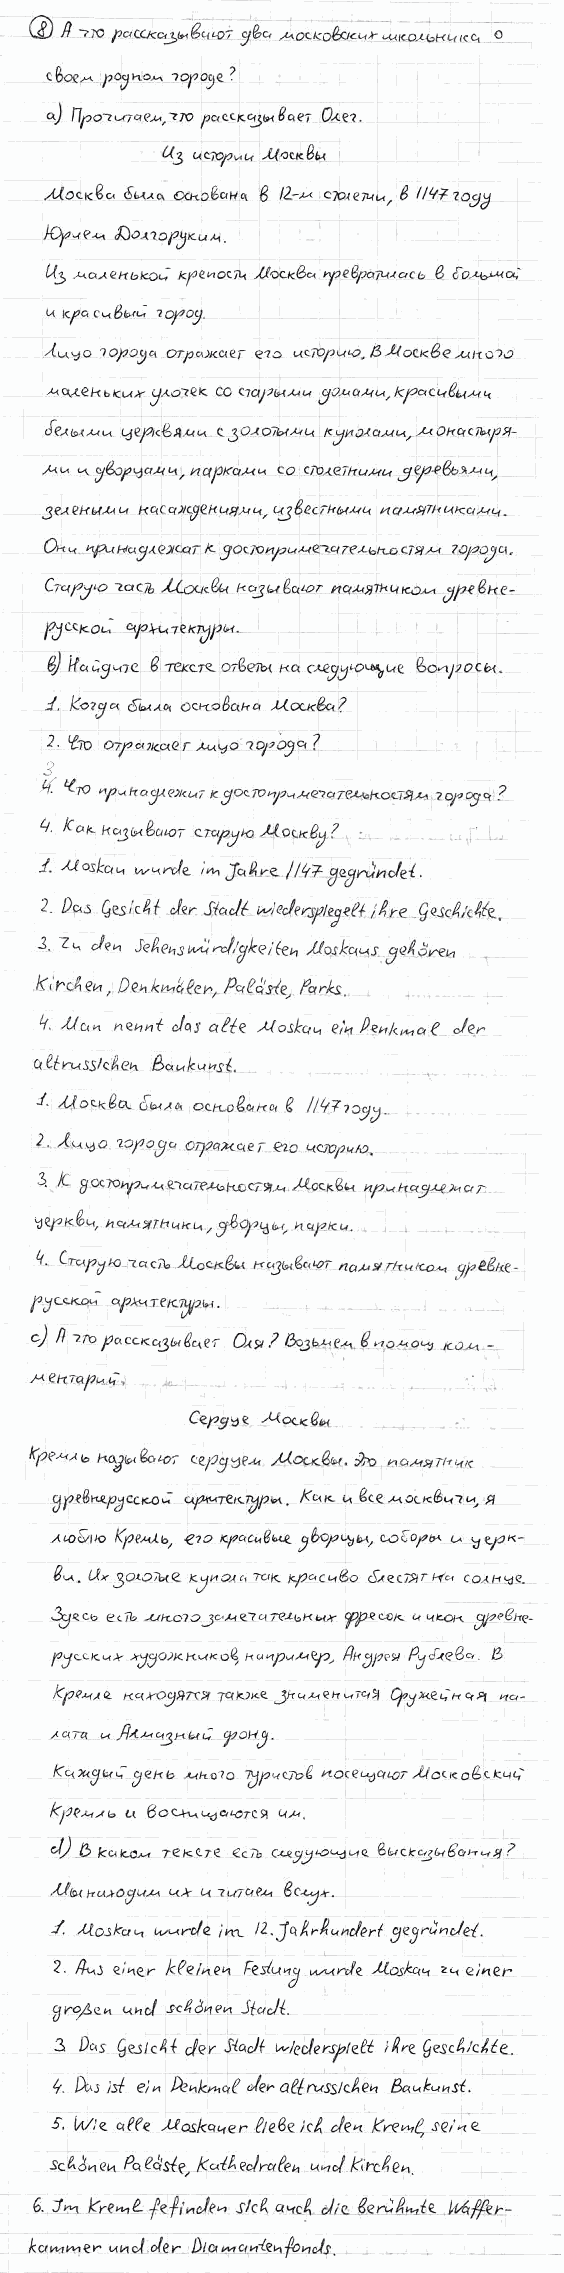 ⑧ А что рассказывают два московских школьника о
своем родном городе?
а) Прочитаем, что рассказывает Олег.
Из истории Москвы
Москва была основана в 12-м столетии, в 1147 году
Юрием Долгоруким.
Из маленькой крепости Москва превратилась в большой
и красивый город.
Лицо города отражает его историю. В Москве много
маленьких улочек со старыми домами, красивыми
белыми церквями с золотыми куполами, монастыря-
ми и дворцами, парками со столетними деревьями,
зелеными насаждениями, известными памятниками.
Они принадлежат к достопримечательностям города.
Старую часть Москвы называют памятником древне-
русской архитектуры.
в) Найдите в тексте ответы на следующие вопросы.
1. Когда была основана Москва?
2. Что отражает лицо города?
3
4. Что принадлежит к достопримечательностям города?
4. Как называют старую Москву?
1. Moskau wurde im Jahre 1147 gegründet.
2. Das Gesicht der Stadt wiederspiegelt ihre Geschichte.
3. Zu den Sehenswürdigkeiten Moskaus gehören
Kirchen, Denkmäler, Paläste, Parks.
4. Man nennt das alte Moskau ein Denkmal der
altrussichen Baukunst.
1. Москва была основана в 1147 году.
2. Лицо города отражает его историю.
3. К достопримечательностям Москвы принадлежат
церкви, памятники, дворцы, парки.
4. Старую часть Москвы называют памятником древне-
русской архитектуры.
с) А что рассказывает Оля? Возьмем в помощ ком-
ментарий.
Сердце Москвы
Кремль называют сердцем Москвы. Это памятник
древнерусской архитектуры. Как и все москвичи, я
люблю Кремль, его красивые дворцы, соборы и церк-
ви. Их золотые купола так красиво блестят на солнце.
Здесь есть много замечательных фресок и икон древне-
русских художников, например, Андрея Рублева. В
Кремле находятся также знаменитая Оружейная па-
лата и Алмазный фонд.
Каждый день много туристов посещают Московский
Кремль и восхищаются им.
d) В каком тексте есть следующие высказывания?
Мы находим их и читаем вслух.
1. Moskau wurde im 12. Jahrhundert gegründet.
2. Aus einer kleinen Festung wurde Moskau zu einer
großen und schönen Stadt.
3 Das Gesicht der Stadt wiederspielt ihre Geschichte.
4. Das ist ein Denkmal der altrussichen Baukunst.
5. Wie alle Moskauer liebe ich den Kreml, seine
schönen Paläste, Kathedralen und Kirchen.
6. Im Kreml fefinden sich auch die berühmte Waffer-
kammer und der Diamantenfonds.